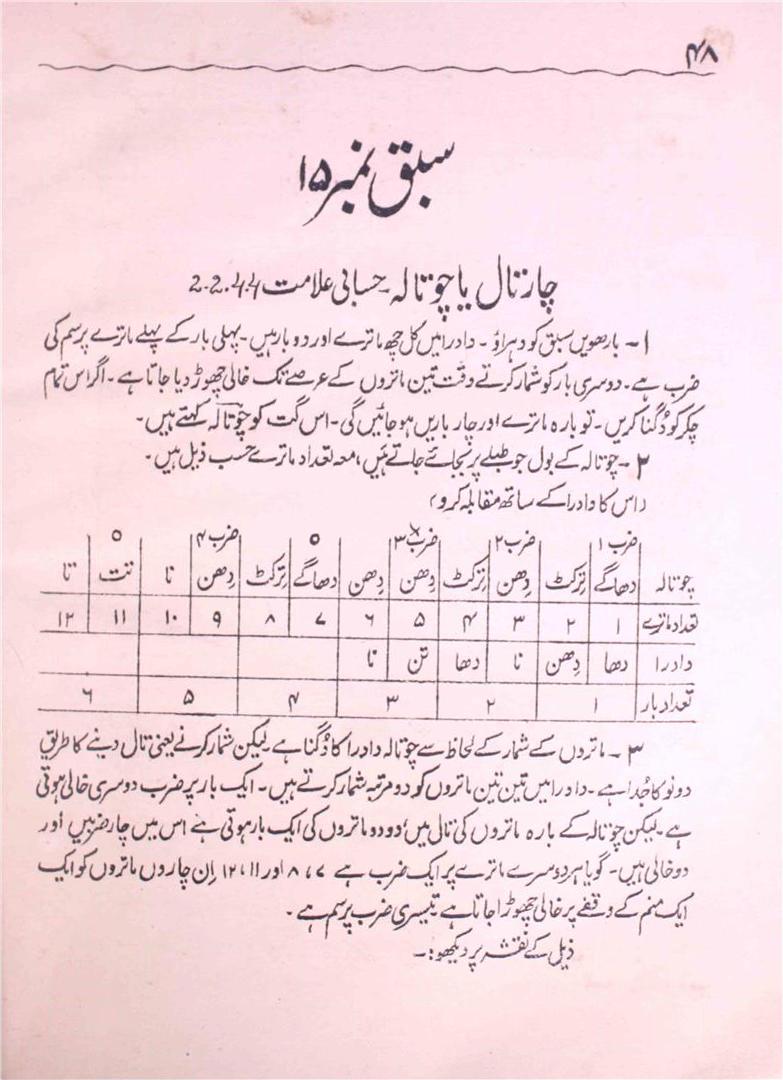 ۴۸
سبق نمبر ۱۵
چارتال یا چوتالہ۔ حسابی علامت ۴.۴.2.2
۱۔ بارھویں سبق کو دہراؤ۔ دادرا میں کل چھ ماترے اور دو بار ہیں۔ پہلی بار کے پہلے ماترے پر سم کی
ضرب ہے۔ دوسری بار کو شمار کرتے وقت تین ماتروں کے عرصے تک خالی چھوڑ دیا جاتا ہے۔ اگر اس تمام
چکر کو دُگنا کریں۔ تو بارہ ماترے اور چار باریں ہو جائیں گی۔ اس گت کو چوتالہ کہتے ہیں۔
۲۔ چوتالہ کے بول جو طبلے پر بجائے جاتے ہیں، معہ تعداد ماترے حسب ذیل ہیں۔
(اس کا دادرا کے ساتھ مقابلہ کرو)
ضرب ۱ ضرب ۲ ضرب ۳ × ٥ ضرب ۴ ٥
چوتالہ دھاگے تِرکٹ دِھن تِرکٹ دِھن دِھن دھاگے تِرکٹ دِھن نا تت تا
تعداد ماترے ۱ ۲ ۳ ۴ ۵ ۶ ۷ ۸ ۹ ۱۰ ۱۱ ۱۲
دادرا دھا دِھن نا دھا تن نا
تعداد بار ۱ ۲ ۳ ۴ ۵ ۶
۳۔ ماتروں کے شمار کے لحاظ سے چوتالہ دادرا کا دُگنا ہے۔ لیکن شمار کرنے یعنی تال دینے کا طریق
دونو کا جُدا ہے۔ دادرا میں تین تین ماتروں کو دو مرتبہ شمار کرتے ہیں۔ ایک بار پر ضرب دوسری خالی ہوتی
ہے۔ لیکن چوتالہ کے بارہ ماتروں کی تالی میں، دو دو ماتروں کی ایک بار ہوتی ہے اس میں چار ضربیں اور
دو خالی ہیں۔ گویا ہر دوسرے ماترے پر ایک ضرب ہے ۷، ۸ اور ۱۱، ۱۲ اِن چاروں ماتروں کو ایک
ایک منم کے وقفے پر خالی چھوڑا جاتا ہے تیسری ضرب پر سم ہے۔
ذیل کے نقشہ پر دیکھو:۔